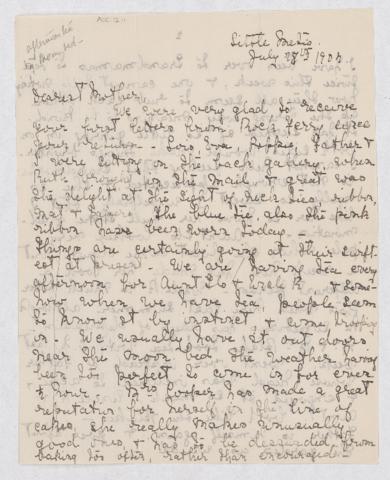 Acc. 12 11
Sitole Metis.
July 28th 1907
Dearest Mother,
We were very glad to receive
your first letters from Rock Ferry since
your return - Lois, Eva, Poppie, Father &
I were sitting on the back gallery when
Ruth brought in the mail & great was
the delight at the sight of neck ties, ribbon,
mat & The blue tie, also the pink
ribbon have been worn today -
Things are certainly going at their swift-
est at present - We are having tea every
afternoon for Aunt & Uncle R. & some-
how when we have tea, people seem
to know it by instinct, & come trooping
in - We usually have it out doors
near the moon bed the weather having
been too perfect to come in for even
½ hour. Mrs Cooper has made a great
reputation for herself in the line of
cakes, she really makes unusually
good ones & has to be dissuaded from
baking too often, rather than encouraged -